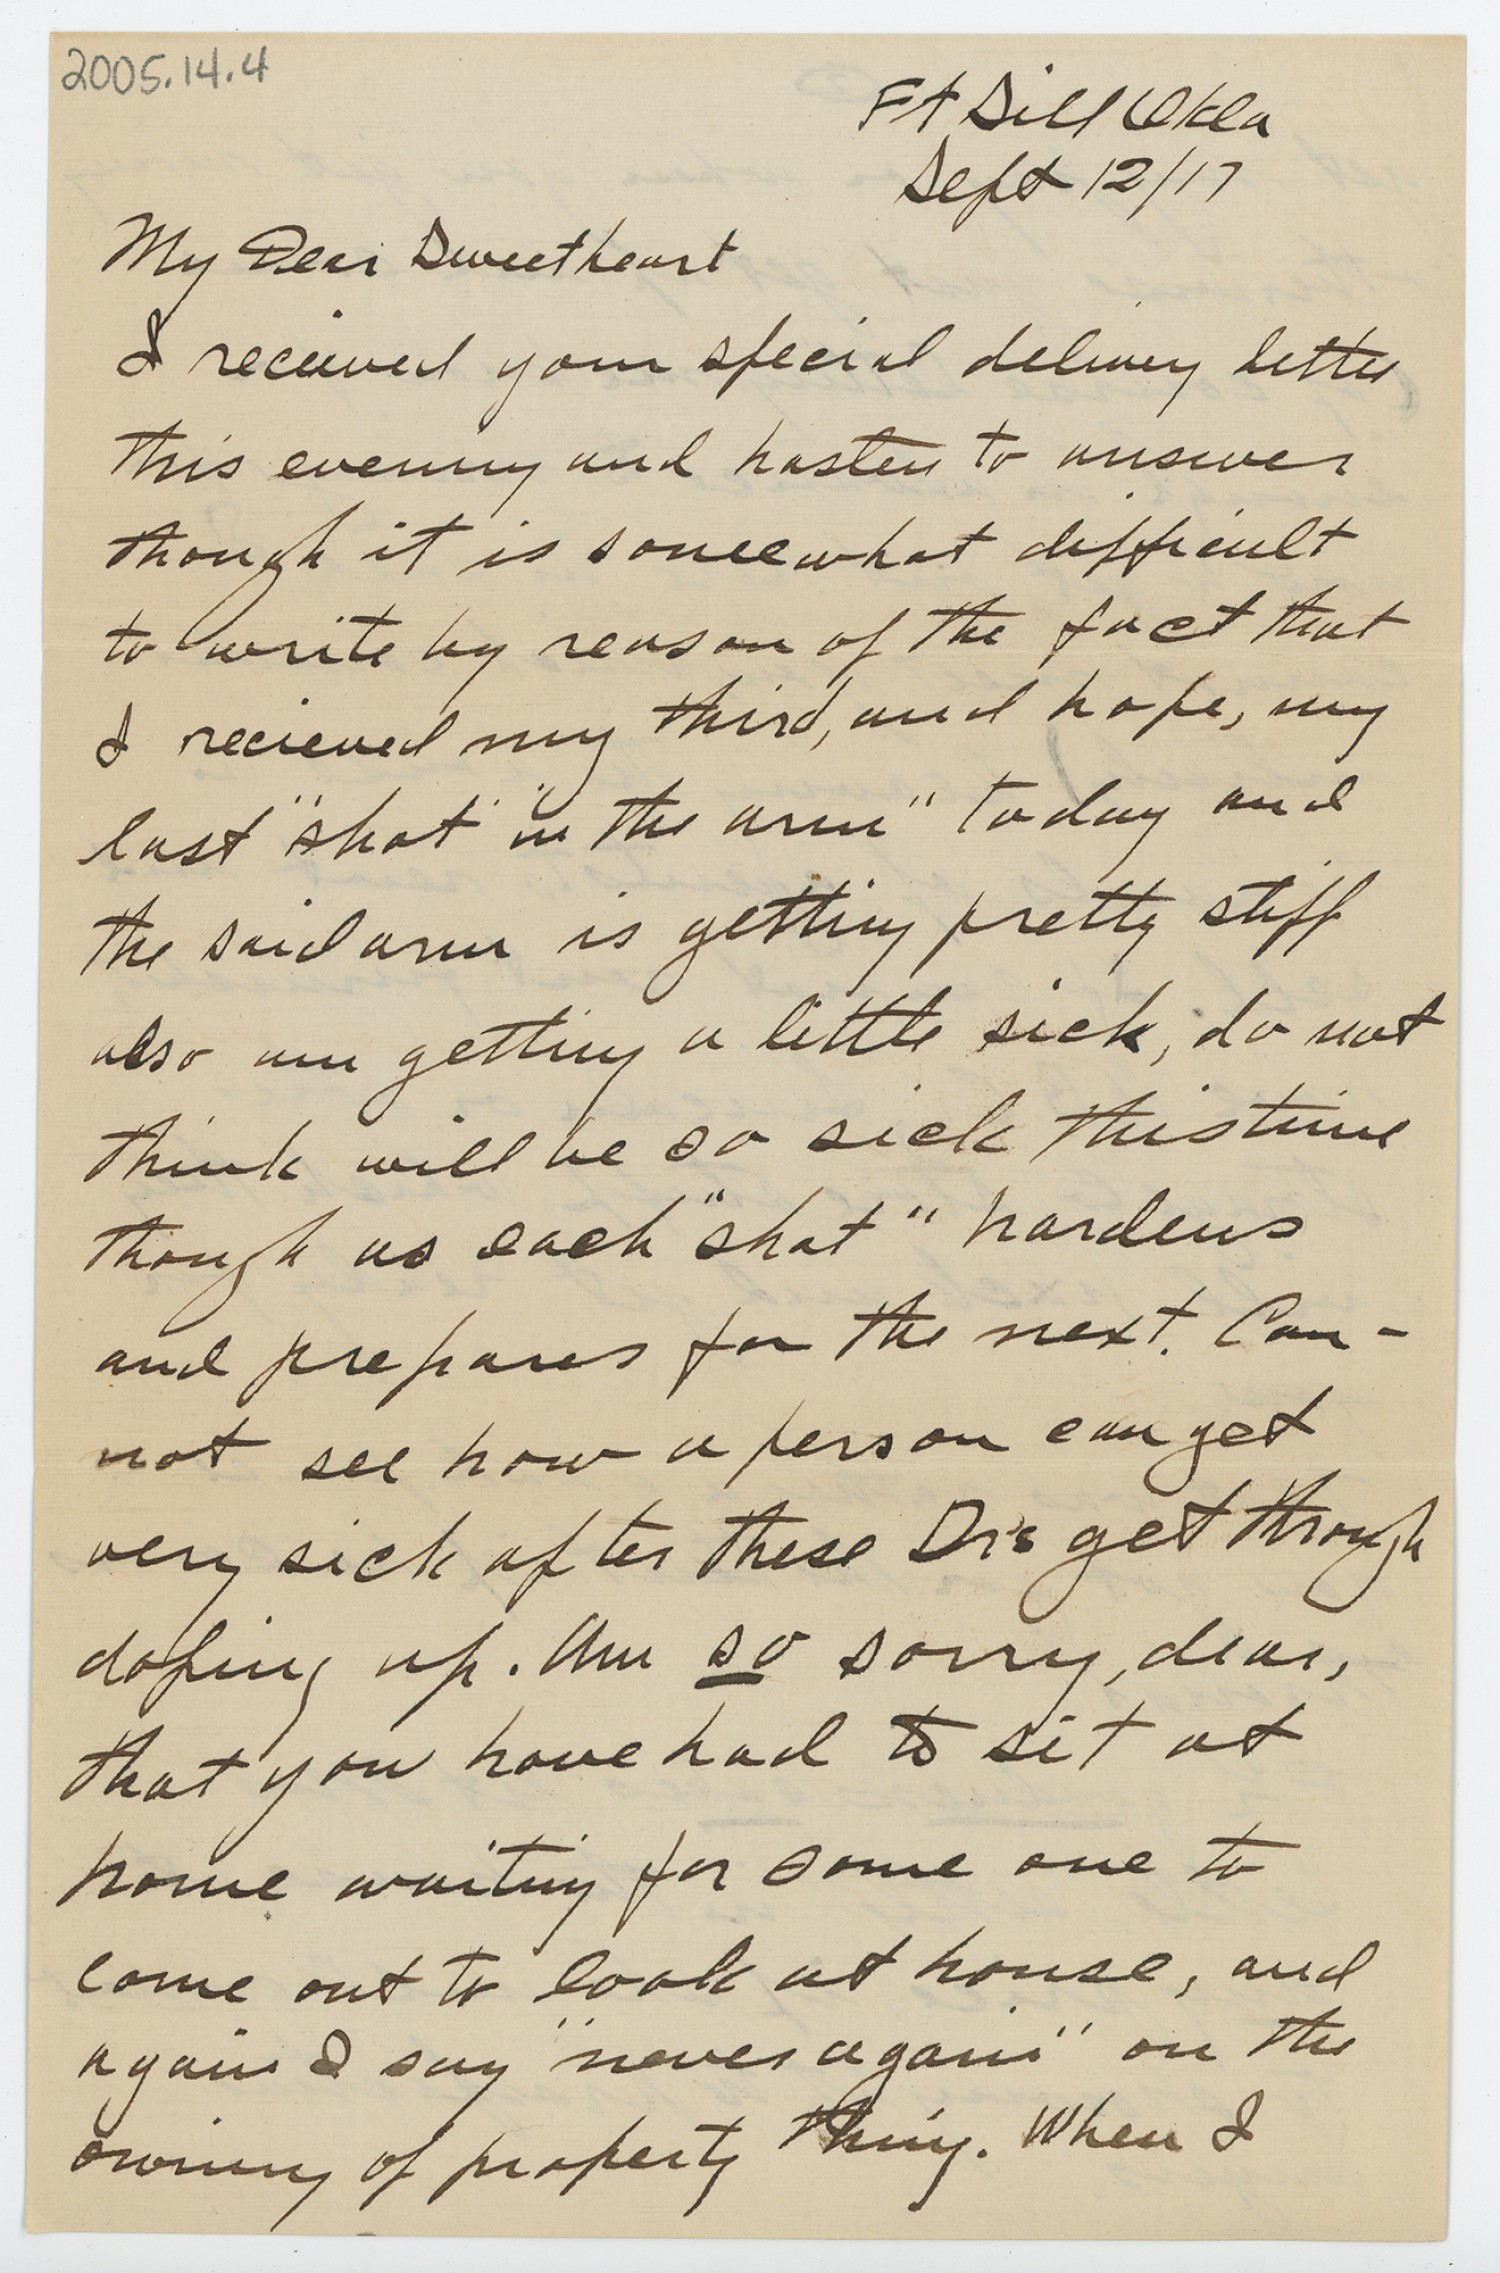 2005.14.4
Ft Sill Okla
Sept 12/17
My Dear Sweetheart
I received your special delivery letter
this evening and hasten to answer
though it is somewhat difficult
to write by reason of the fact that
I recieved my third, and hope, my
last "shot" "in the arm" today and
the said arm is getting pretty stiff
also am getting a little sick, do not
think will be so sick this time
though as each "shot" hardens
and prepares for the next. Can-
not see how a person can get
very sick after these Dr's get through
doping up. Am so sorry, dear,
that you have had to sit at
home waiting for some one to
come out to look at house, and
again I say "never again" on the
owning of property thing. When I